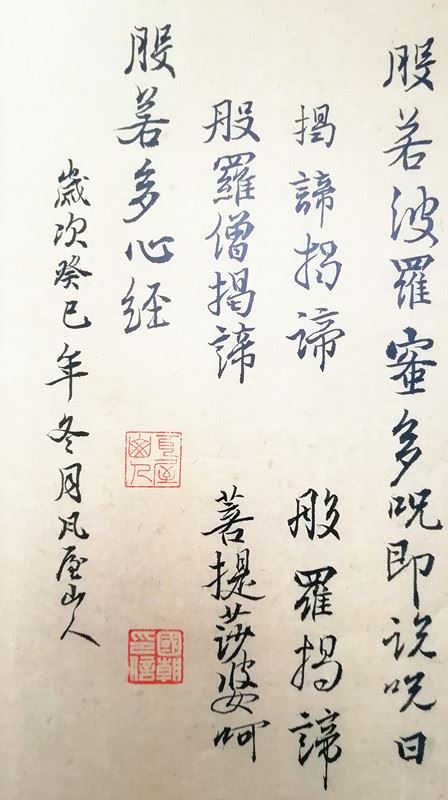 般若波羅蜜多呪即说呪曰
揭諦揭諦 般羅揭諦
般羅僧揭諦 菩提莎婆呵
般若多心経
歲次癸巳年冬月凡屋山人